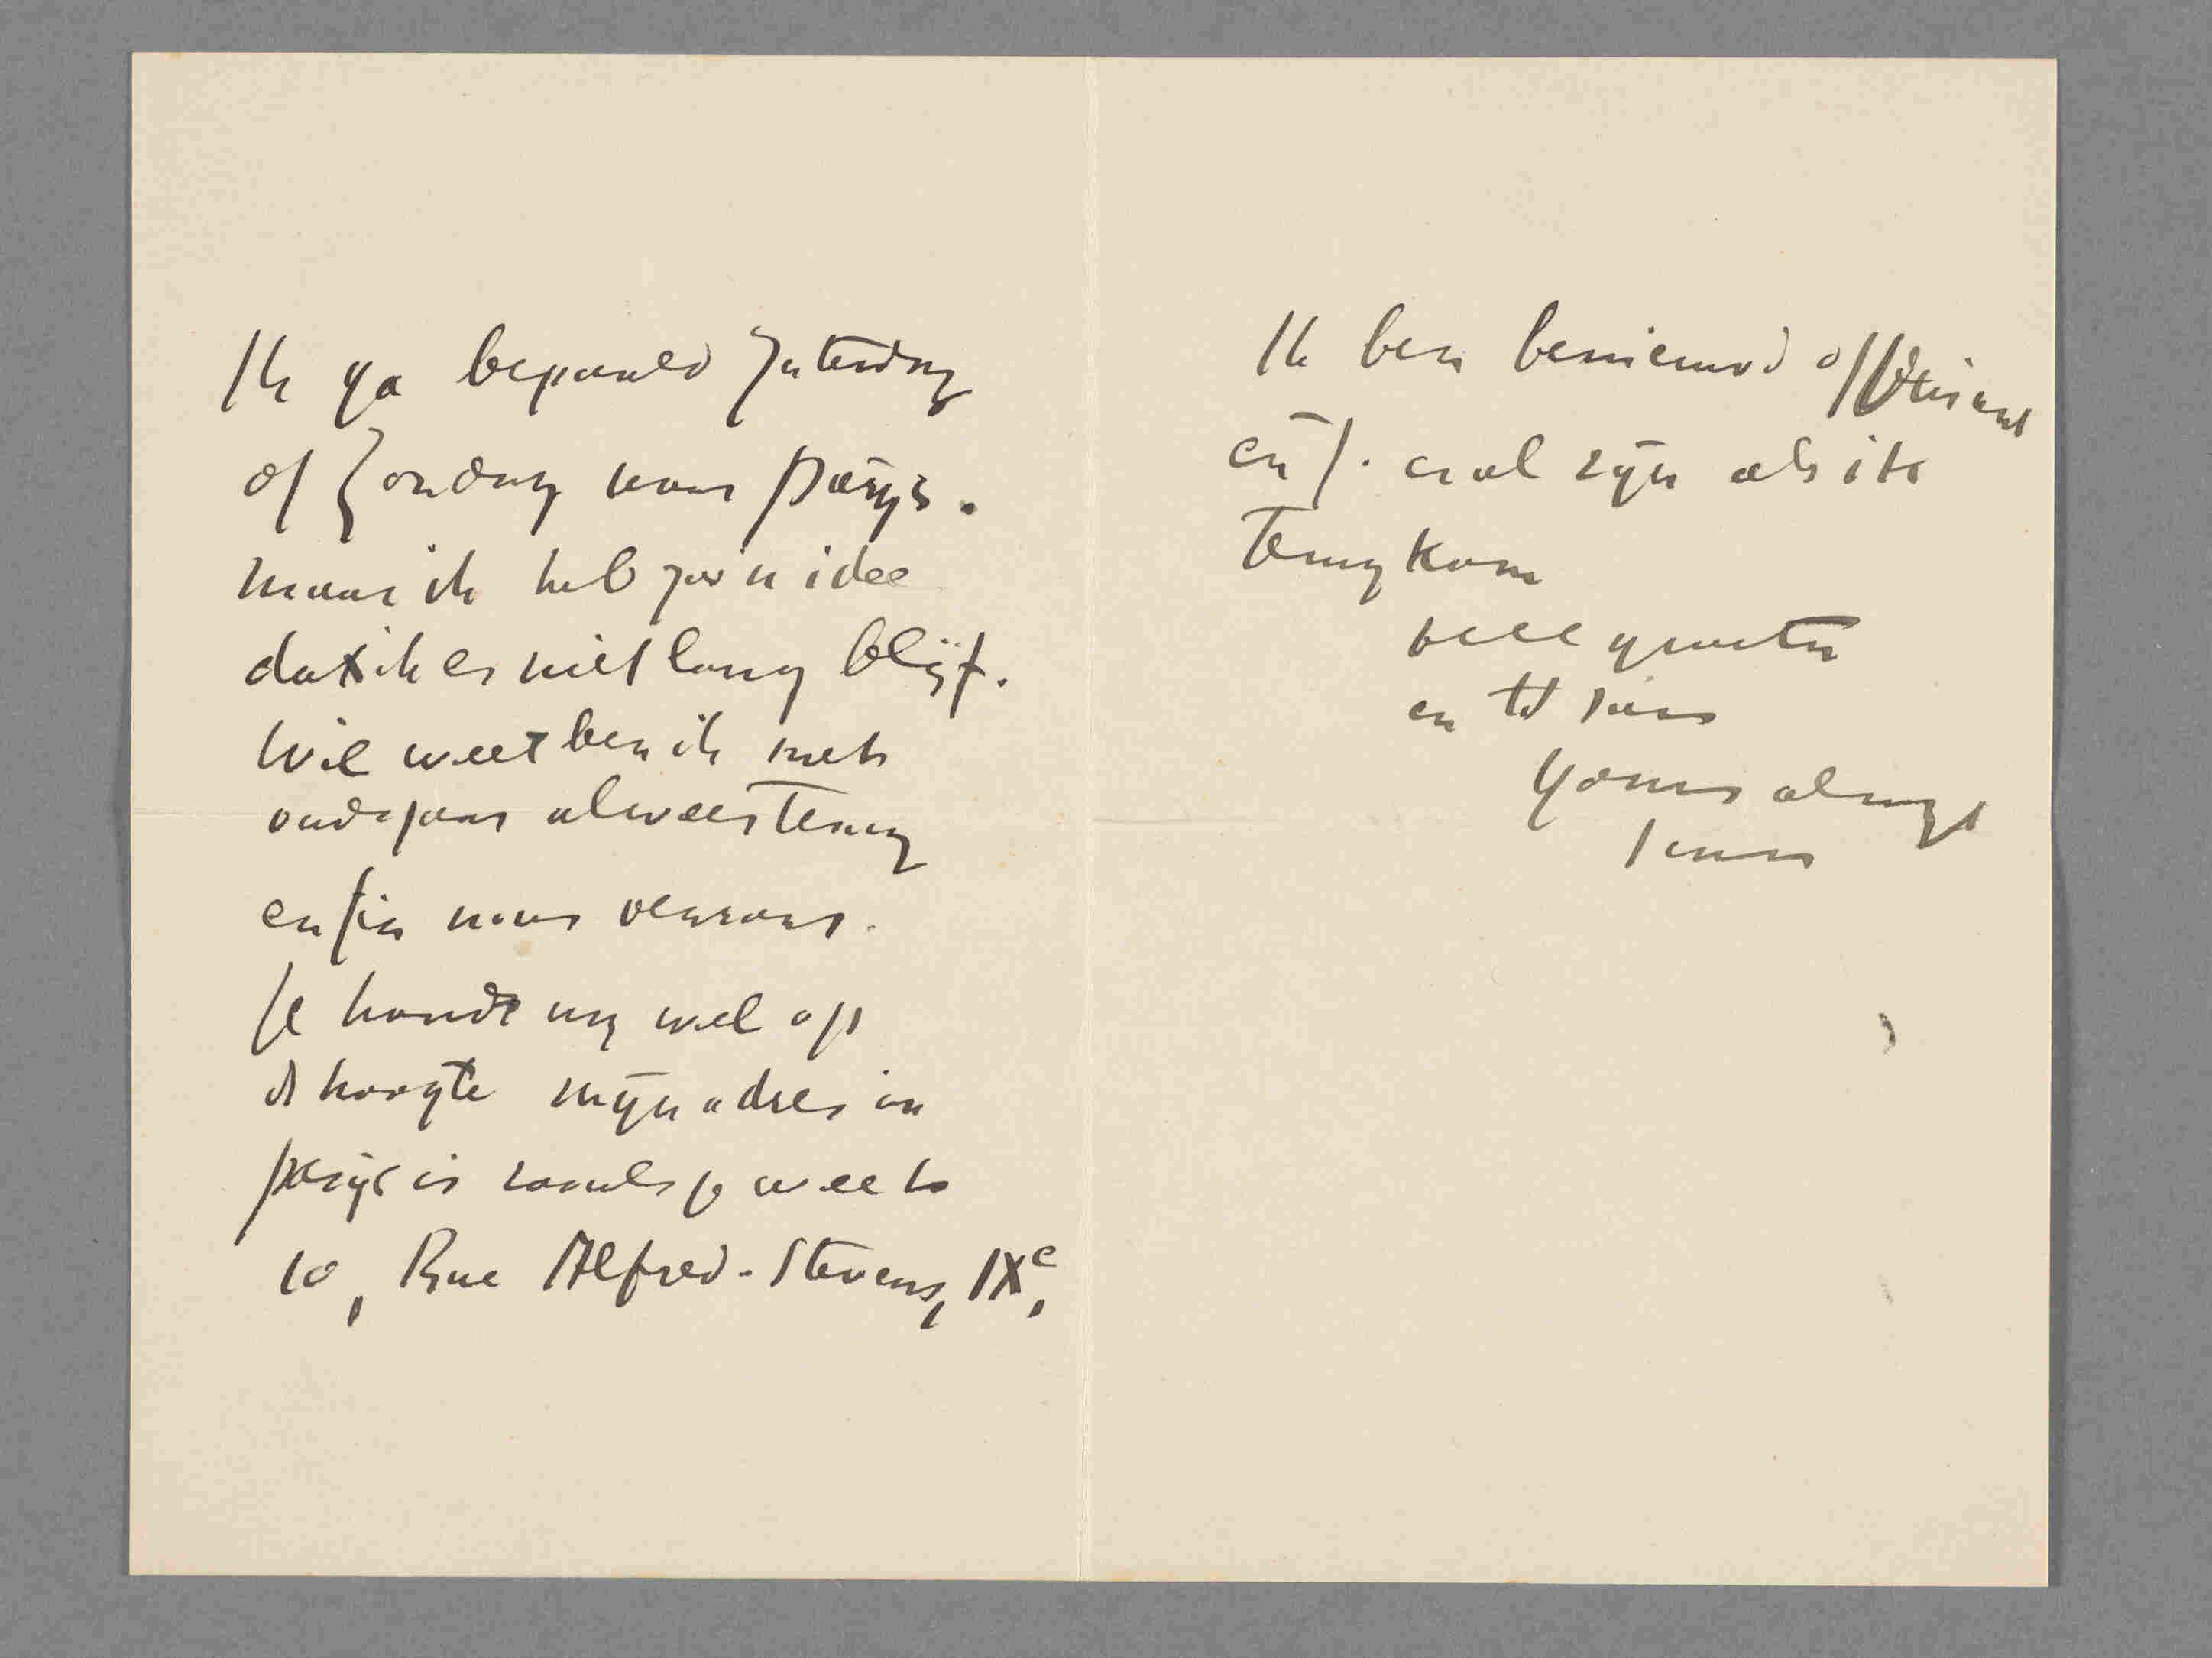 Ik ga bepaald Zaterdag
of Zondag naar Parijs.
maar ik heb zoo'n idee
dat ik er niet lang blijf.
Wie weet ben ik met
oudejaar alweer terug
enfin nous verrons.
Je houdt mij wel op
d hoogte mijn adres in
parijs is zooals je weet
10, Rue Alfred-Stevens, IXe,
Ik ben benieuwd of
en f. er al zijn als ik
terug kom
veel groeten
en tot ziens
Yours always